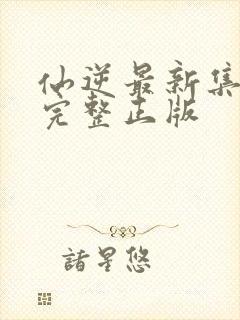 仙逆最新集
完整正版
诸星悠